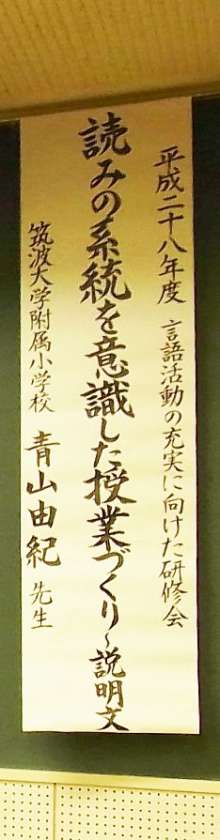 平成二十八年度 言語活動の充実に向けた研修会
読みの系統を意識した授業づくり~説明文
筑波大学附属小学校 青山由紀 先生